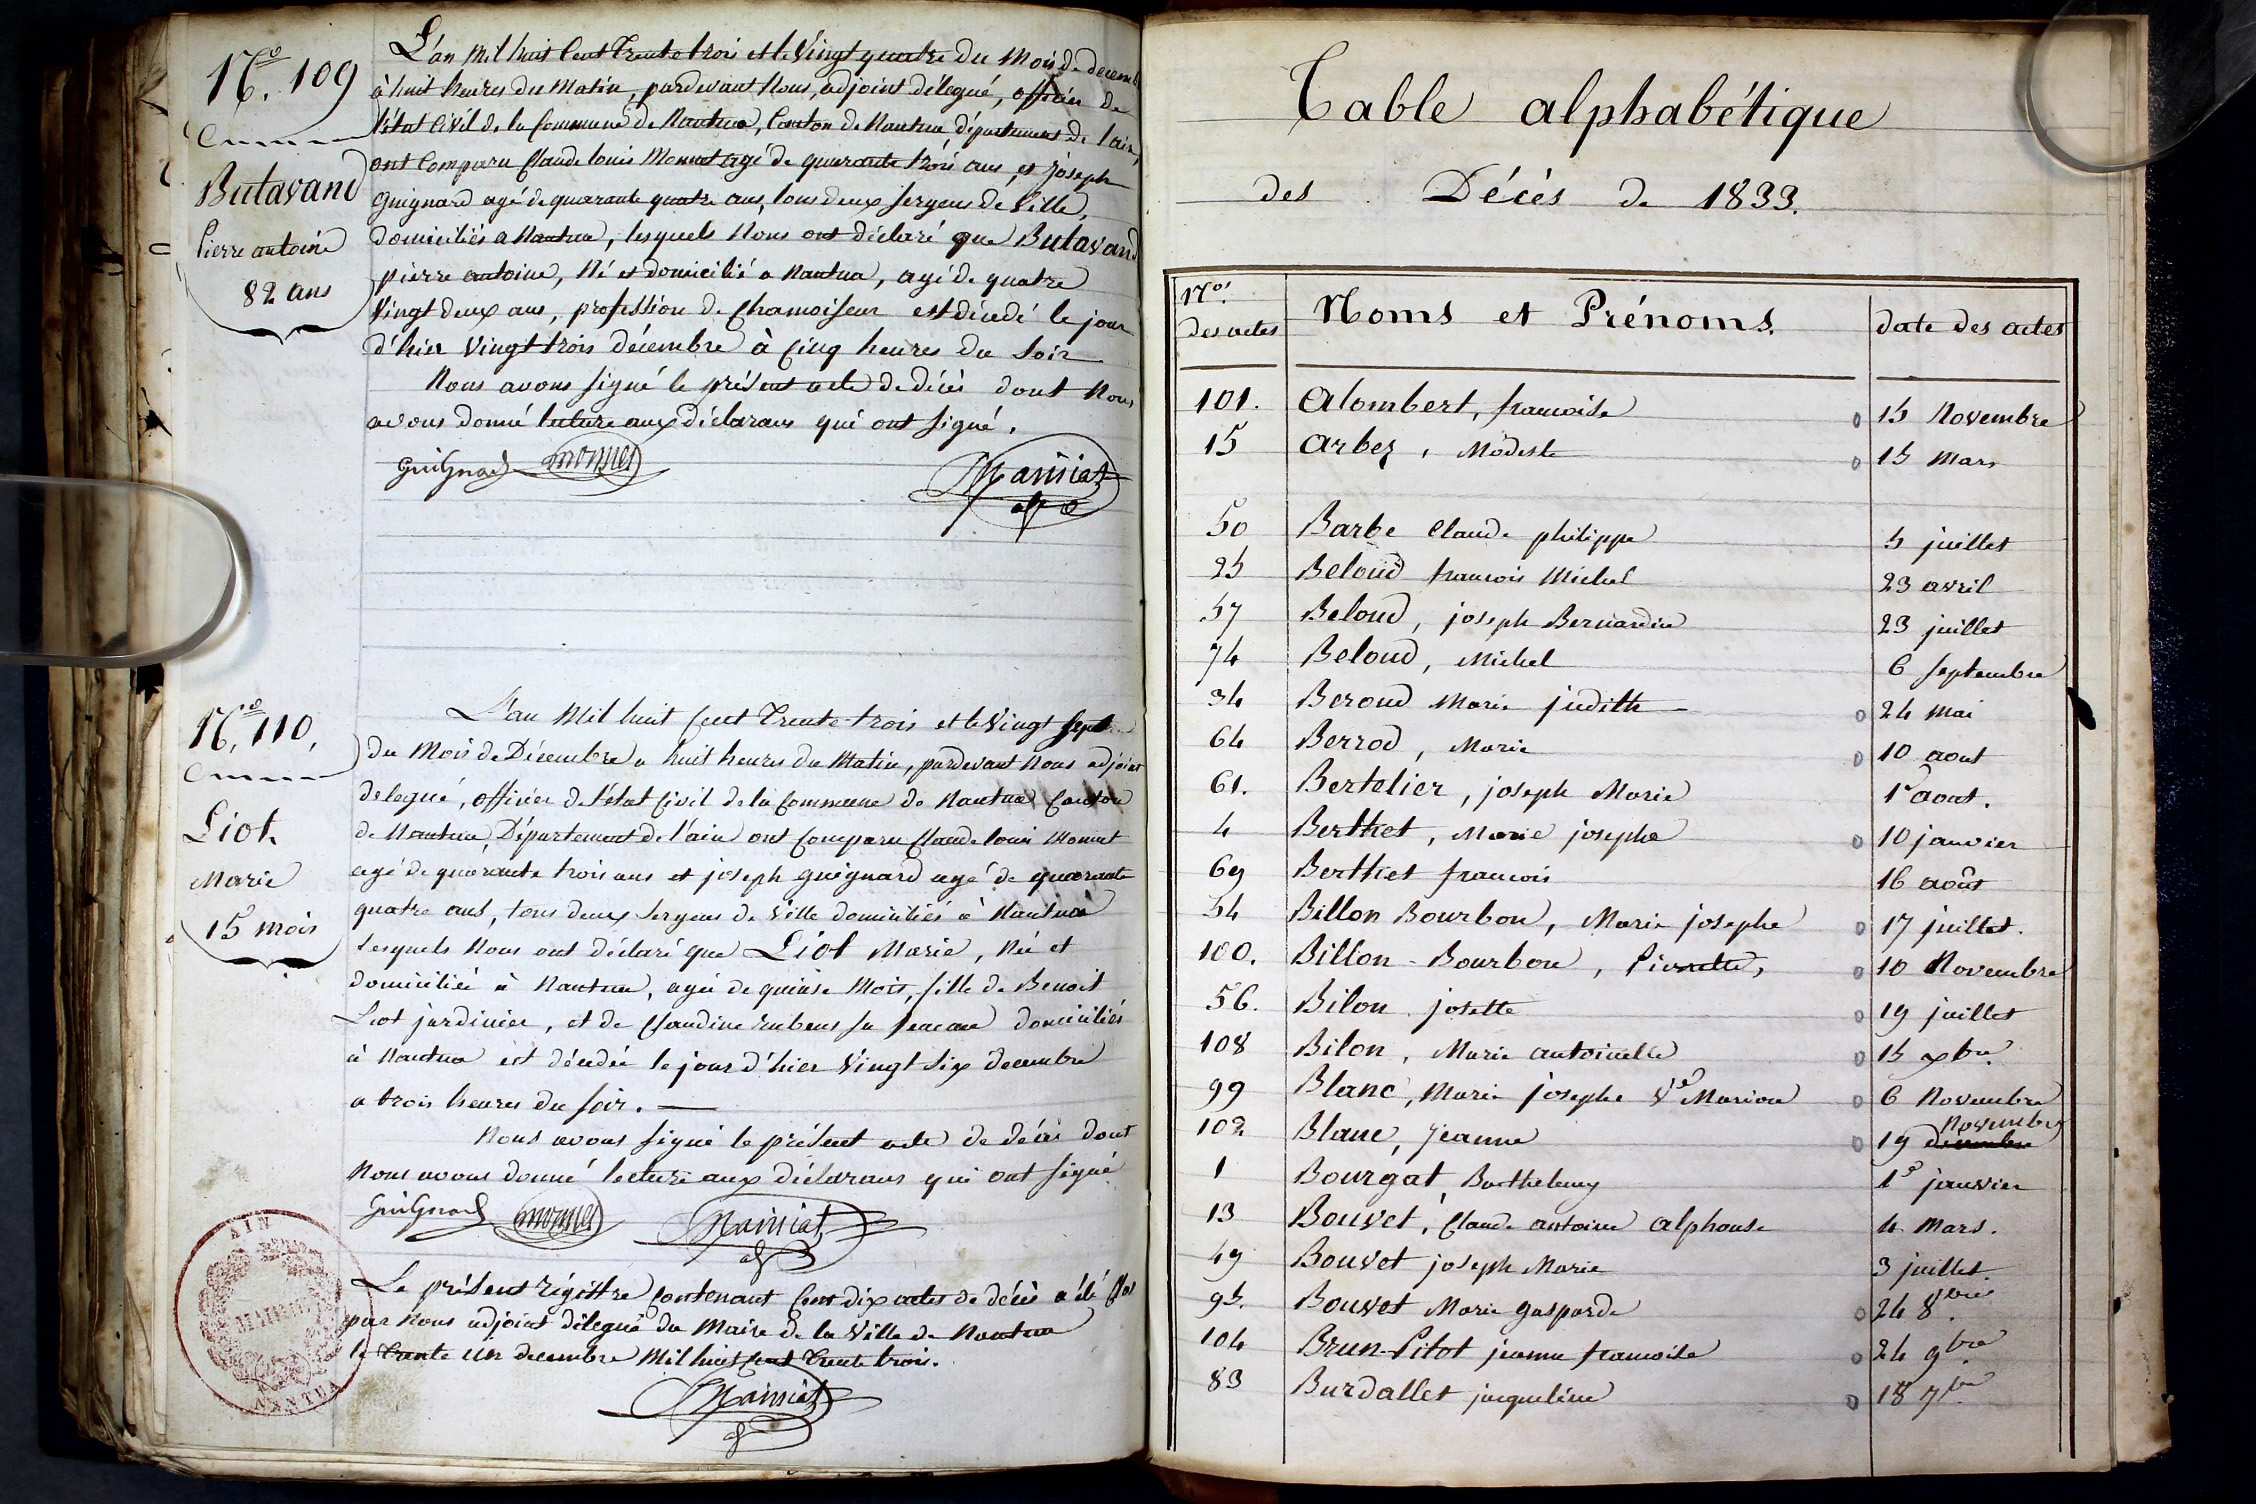 Nº. 109
Butavand
Pierre antoine
82 ans
L'an Mil huit Cent Trente trois et le Vingt quatre du Mois de decemb
à huit heures du Matin, pardevant Nous, adjoint délegué, officier de
l'état Civil de la Commune de Nantua, Canton de Nantua département de l'ain,
ont Comparu Claude louis Monnet agé de quarante trois ans, et joseph
Guignard agé de quarante quatre ans, tous deux sergens de Ville,
domiciliés a Nantua, lesquels Nous ont déclaré que Butavand
pierre antoine, Né et domicilié a Nantua, agé de quatre
Vingt deux ans, profession de Chamoiseur est décédé le jour
d'hier Vingt trois décembre à Cinq heures du Soir
Nous avons signé le présent acte de décès dont Nous
avons donné lecture aux déclarans qui ont signé.
Guignard monnet Mainiat
Nº. 110.
Liot.
Marie
15 mois
L'an Mil huit Cent Trente-trois et le Vingt Sept
du Mois de Décembre a huit heures du Matin, pardevant Nous adjoint
delegué, officier de l'état Civil de la Commune de Nantua Canton
de Nantua, Département de l'ain ont Comparu Claude louis Monnet
agé de quarante trois ans et joseph guignard agé de quarante
quatre ans, tous deux sergens de Ville domiciliés à Nantua
lesquels Nous ont déclaré que Liot Marie, Née et
domiciliée à Nantua, agée de quinze Mois, fille de Benoit
Liot jardinier, et de Claudine rubens sa femme domiciliés
à Nantua est décédée le jour d'hier Vingt Six decembre
a trois heures du Soir.
Nous avons signé le présent acte de décès dont
Nous avons donné lecture aux déclarans qui ont signé
Guignard monnet Mainiat
Le présent régistre Contenant Cent dix actes de décès a été Clos
par Nous adjoint délegué du Maire de la Ville de Nantua
le Trente un decembre Mil huit Cent Trente trois.
Mainiat
AIN
NANTUA
Table alphabétique
des Décès de 1833.
Nos. des actes Noms et Prénoms. date des actes
101. Alombert, francoise 15 Novembre
15 Arbez, Modeste 15 Mars
50 Barbe Claude philippe 5 juillet
25 Beloud francois Michel 23 avril
57 Beloud, joseph Bernardin 23 juillet
74 Beloud, Michel 6 Septembre
34 Beroud Marie judith 24 Mai
64 Berrod, Marie 10 aout
61. Bertelier, joseph Marie 1er aout.
4 Berthet, Marie josephe 10 janvier
69 Berthet francois 16 août
54 Billon Bourbon, Marie josephe 17 juillet.
100. Billon-Bourbon, Pierrette, 10 Novembre
56. Bilon josette 19 juillet
108 Bilon, Marie antoinette 15 xbre.
99 Blanc, Marie josephe Ve Marion 6 Novembre
102 Blanc, Jeanne 19 decembre Novembre
1 Bourgat Barthelemy 1er janvier
13 Bouvet, Claude antoine alphonse 4 Mars.
49 Bouvet joseph Marie 3 juillet.
95. Bouvet Marie gasparde 24 8bre.
104 Brun-Pitot jeanne francoise 24 9bre
83 Burdallet jacqueline 18 7bre